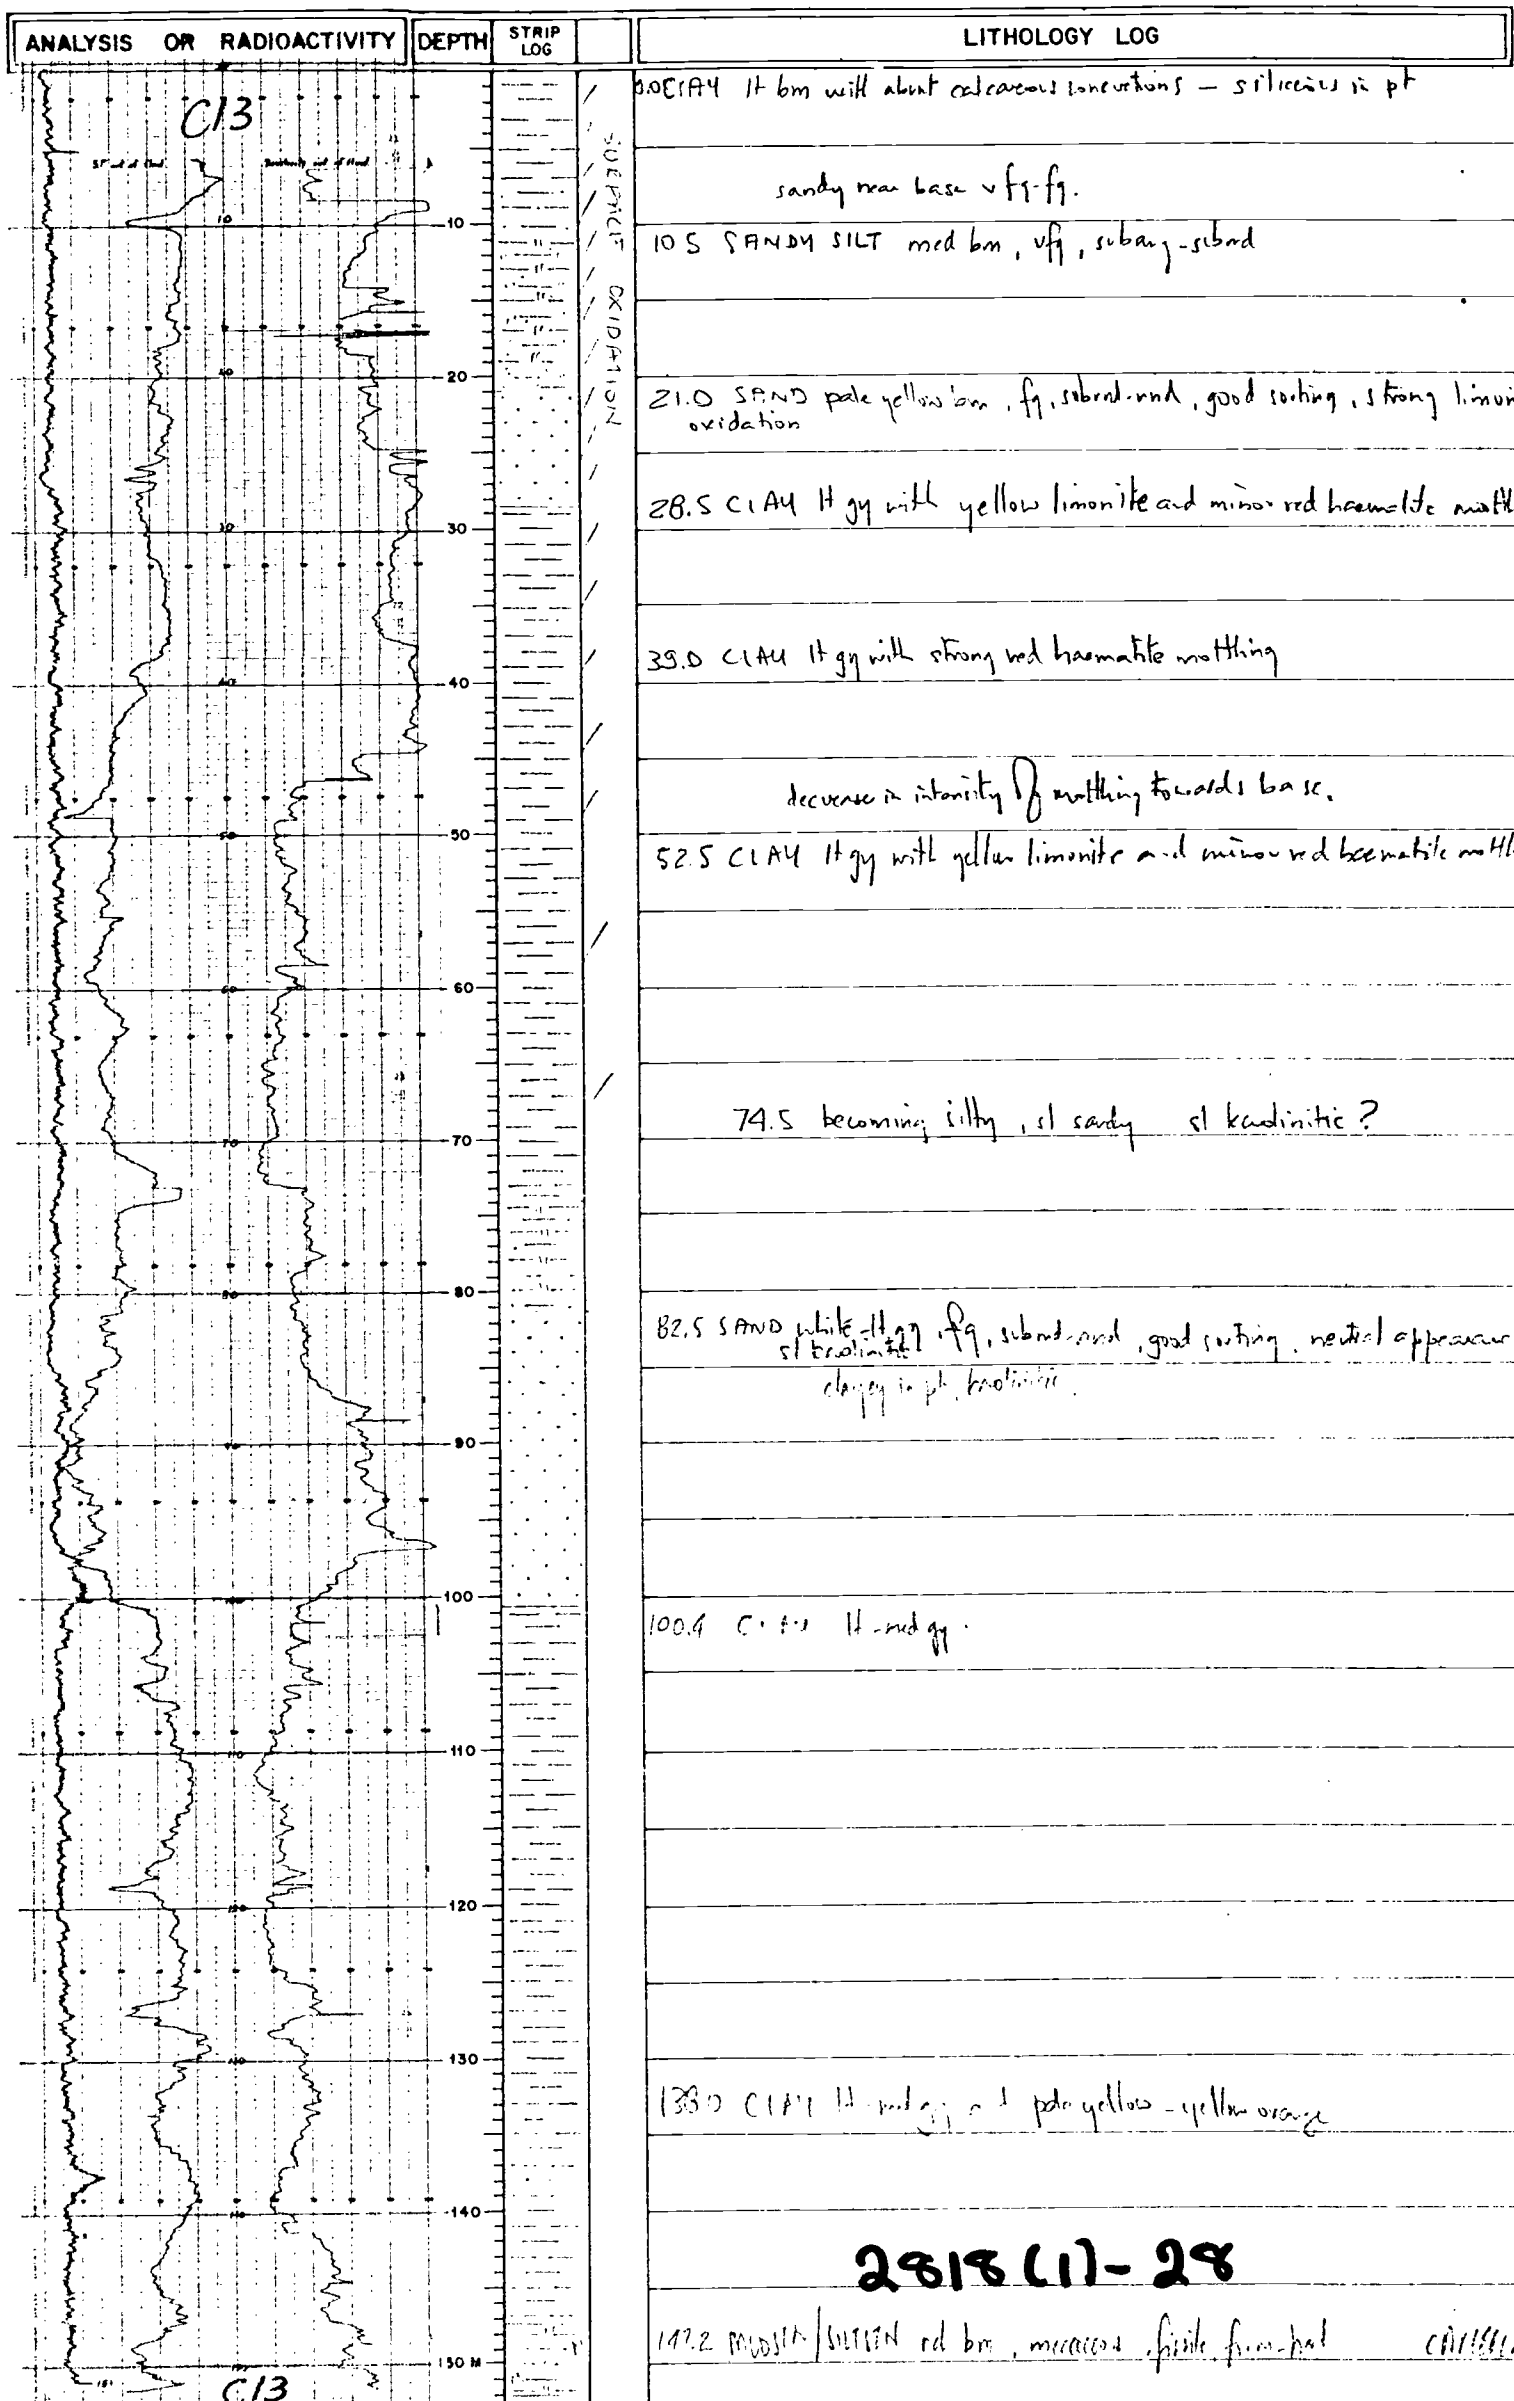 ANALYSIS OR RADIOACTIVITY DEPTH STRIP LOG LITHOLOGY LOG
C13
0.0 CLAY lt brn with abunt calcareous concretions — siliceous in pt
sandy near base vfg-fg.
10
10.5 SANDY SILT med brn, vfg, subang-subrnd
SURFACE OXIDATION
20
21.0 SAND pale yellow brn, fg, subrnd-rnd, good sorting, strong limon
oxidation
28.5 CLAY lt gy with yellow limonite and minor red haematite mottl
30
39.0 CLAY lt gy with strong red haematite mottling
40
decrease in intensity of mottling towards base.
50
52.5 CLAY lt gy with yellow limonite and minor red haematite mottl
60
74.5 becoming silty, sl sandy sl kaolinitic?
70
80
82.5 SAND white-lt gy, fg, subrnd-rnd, good sorting, neutral appearan
sl kaolinitic
clayey in pt, kaolinitic.
90
100
100.4 CLAY lt-med gy.
110
120
130
CLAY lt-med gy and pale yellow-yellow orange
140
2818(1)-28
MUDSTN/SILTSTN rd brn, micaceous, fissile, firm-hard
150 M
C13